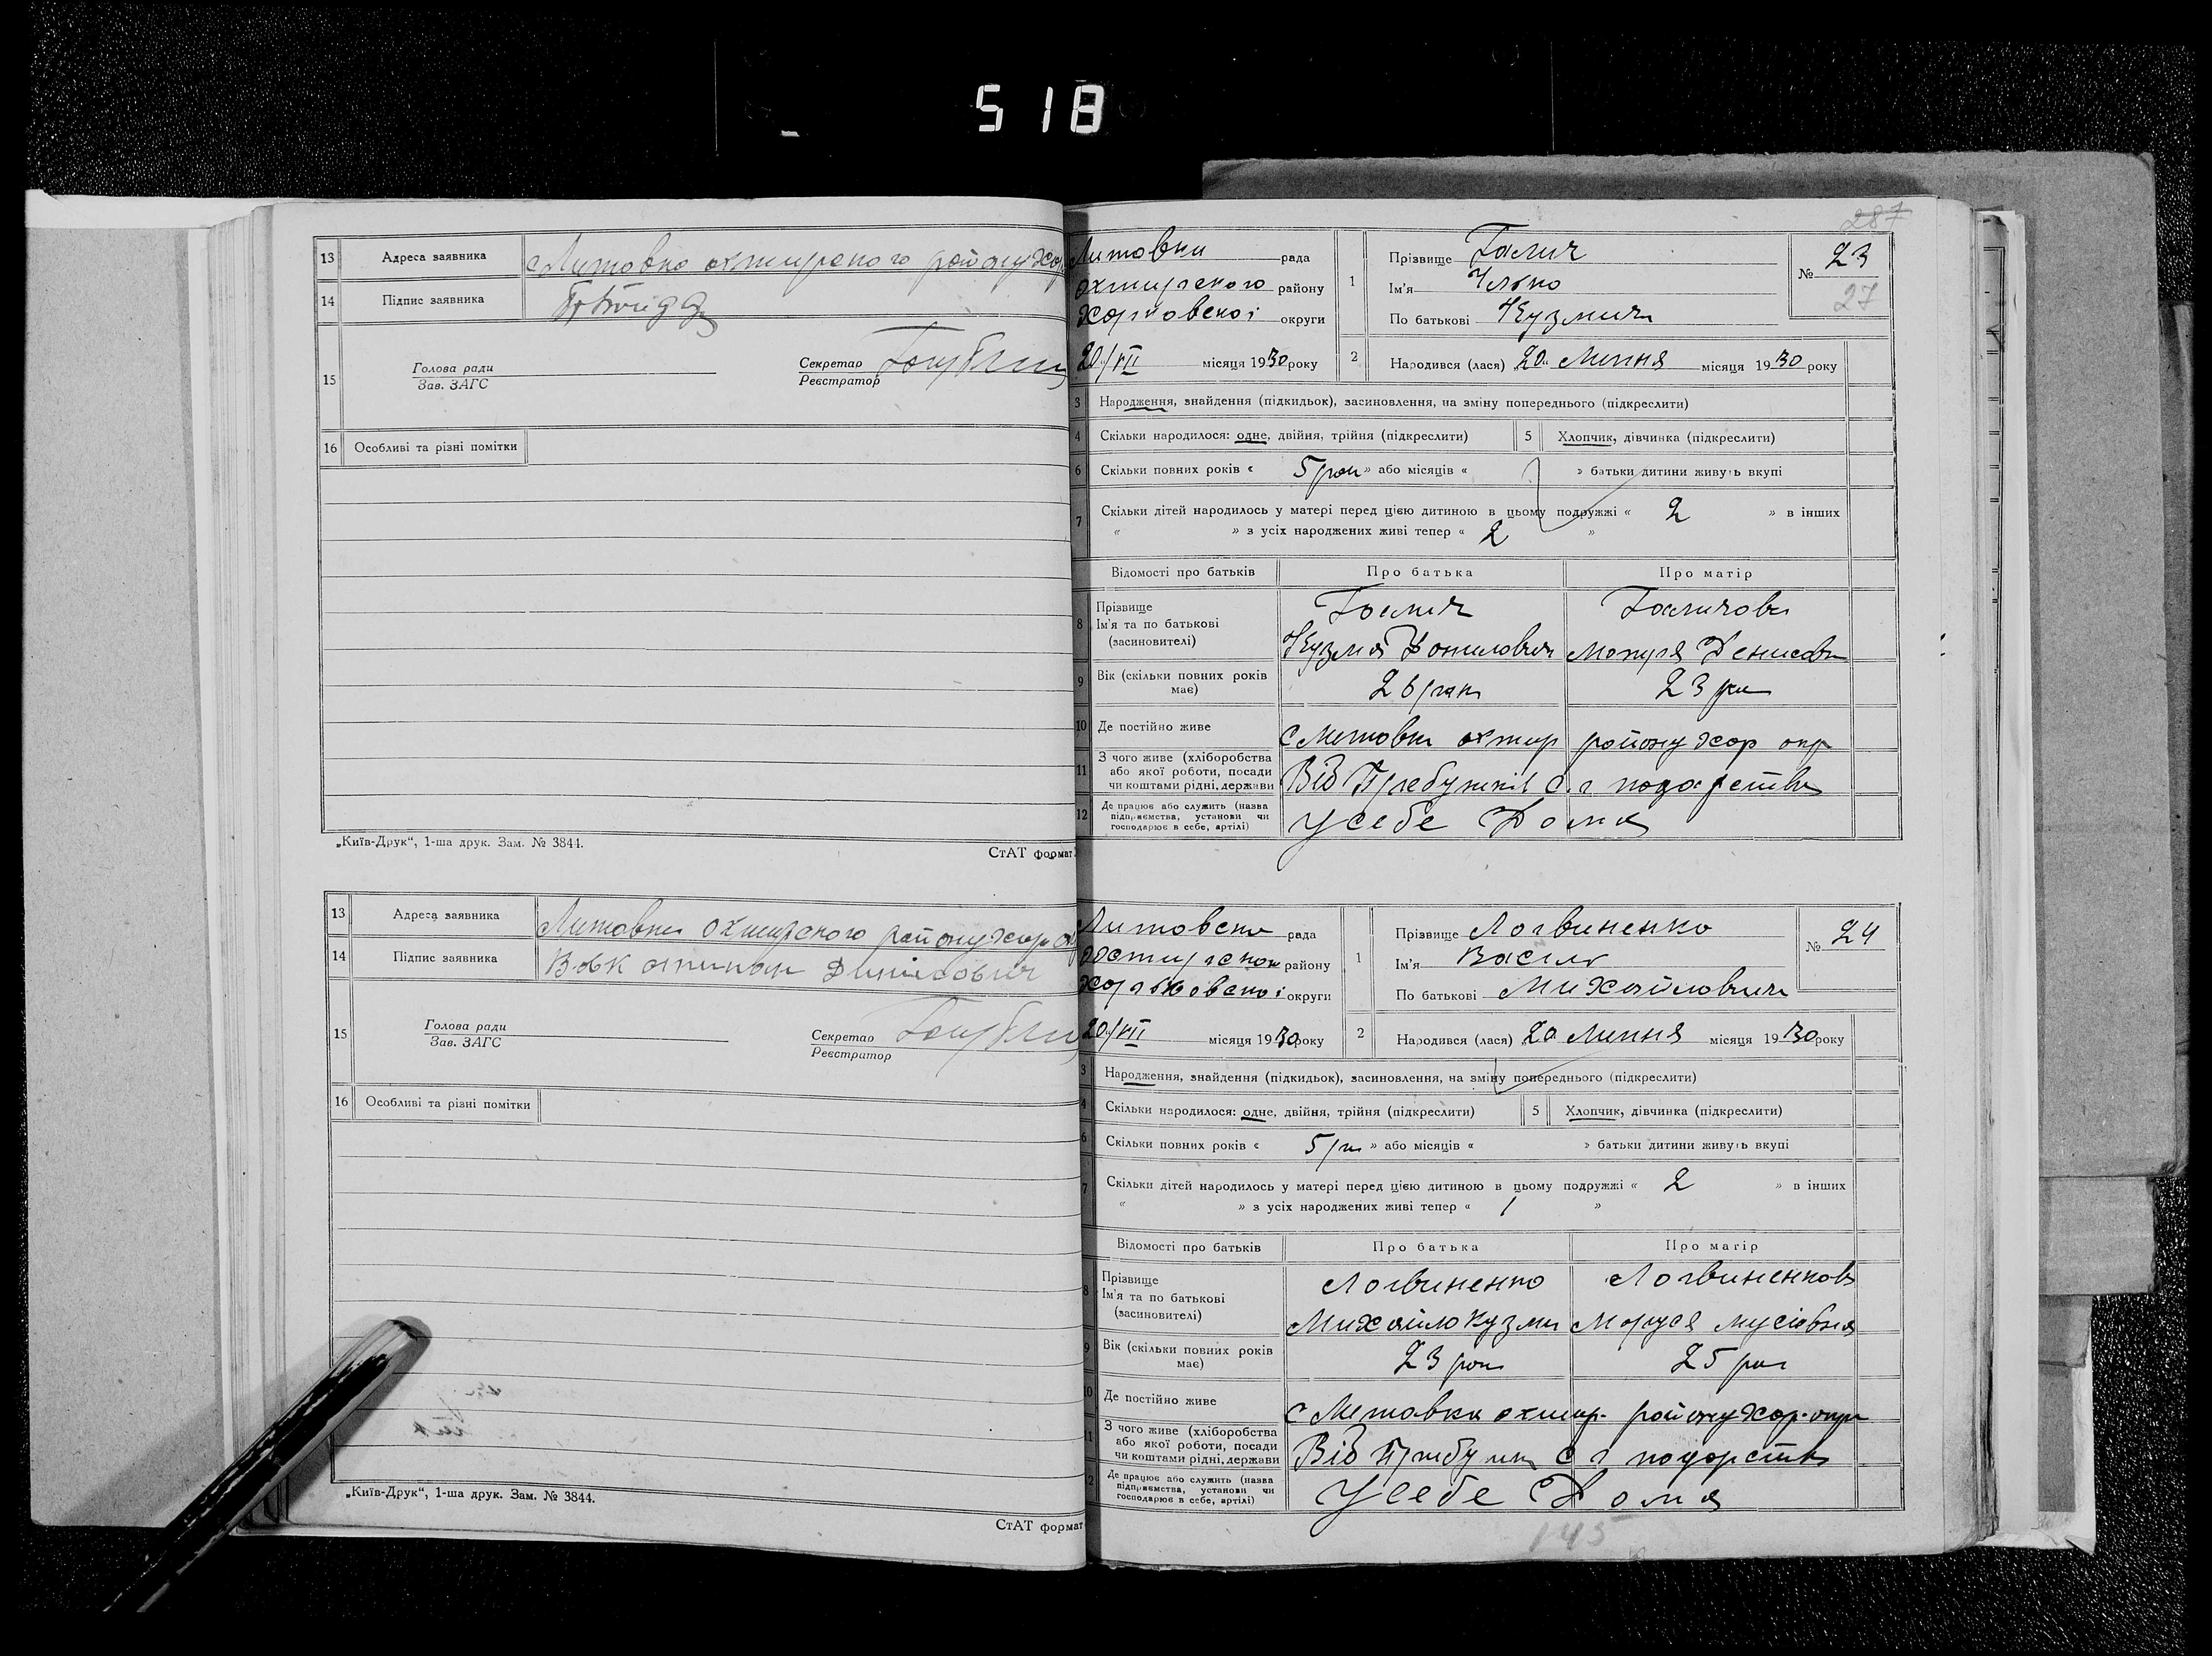 518
13 Адреса заявника с Литовка охтирського району Хар
14 Підпис заявника
15 Голова ради
Зав. ЗАГС
Секретар
Реєстратор
16 Особливі та різні помітки
„Київ-Друк“, 1-ша друк. Зам. № 3844.
СтАТ формат
13 Адреса заявника Литовка охтирского району Хар ок
14 Підпис заявника Вовк
15 Голова ради
Зав. ЗАГС
Секретар
Реєстратор
16 Особливі та різні помітки
„Київ-Друк“, 1-ша друк. Зам. № 3844.
СтАТ формат
287
Литовки рада
охтирского району
округи
20/VII місяця 1930 року
1 Прізвище Галич
Ім'я Илько
По батькові Кузмич
№ 23
27
2 Народився (лася) „20“ Липня місяця 1930 року
3 Народження, знайдення (підкидьок), засиновлення, на зміну попереднього (підкреслити)
4 Скільки народилося: одне, двійня, трійня (підкреслити) 5 Хлопчик, дівчинка (підкреслити)
6 Скільки повних років « 5 рок » або місяців « » батьки дитини живуть вкупі
7 Скільки дітей народилось у матері перед цією дитиною в цьому подружжі « 2 » в інших
« » з усіх народжених живі тепер « 2 »
Відомості про батьків Про батька Про матір
8 Прізвище Галич Галичова
Ім'я та по батькові
(засиновителі) Кузма Данилович Денисовн
9 Вік (скільки повних років має) 26 рок 23 рок
10 Де постійно живе с Литовки охтир району Хар окр
11 З чого живе (хліборобства або якої роботи, посади чи коштами рідні, держави Від Прибутків с г
12 Де працює або служить (назва підприємства, установи чи господарює в себе, артілі) У себе Дома
рада
району
округи
20/VII місяця 1930 року
1 Прізвище Логвиненко
Ім'я Василь
По батькові Михайлович
№ 24
2 Народився (лася) „20 Липня місяця 1930 року
3 Народження, знайдення (підкидьок), засиновлення, на зміну попереднього (підкреслити)
4 Скільки народилося: одне, двійня, трійня (підкреслити) 5 Хлопчик, дівчинка (підкреслити)
6 Скільки повних років « 5 » або місяців « » батьки дитини живуть вкупі
7 Скільки дітей народилось у матері перед цією дитиною в цьому подружжі « 2 » в інших
« » з усіх народжених живі тепер « 1 »
Відомості про батьків Про батька Про матір
8 Прізвище Логвиненко Логвиненкова
Ім'я та по батькові
(засиновителі) Михайло Кузми Маруся Мусієвна
9 Вік (скільки повних років має) 23 рок 25 рок
10 Де постійно живе с Литовка охтир. району Хар. окр
11 З чого живе (хліборобства або якої роботи, посади чи коштами рідні, держави Від с г
12 Де працює або служить (назва підприємства, установи чи господарює в себе, артілі) У себе Дома
145